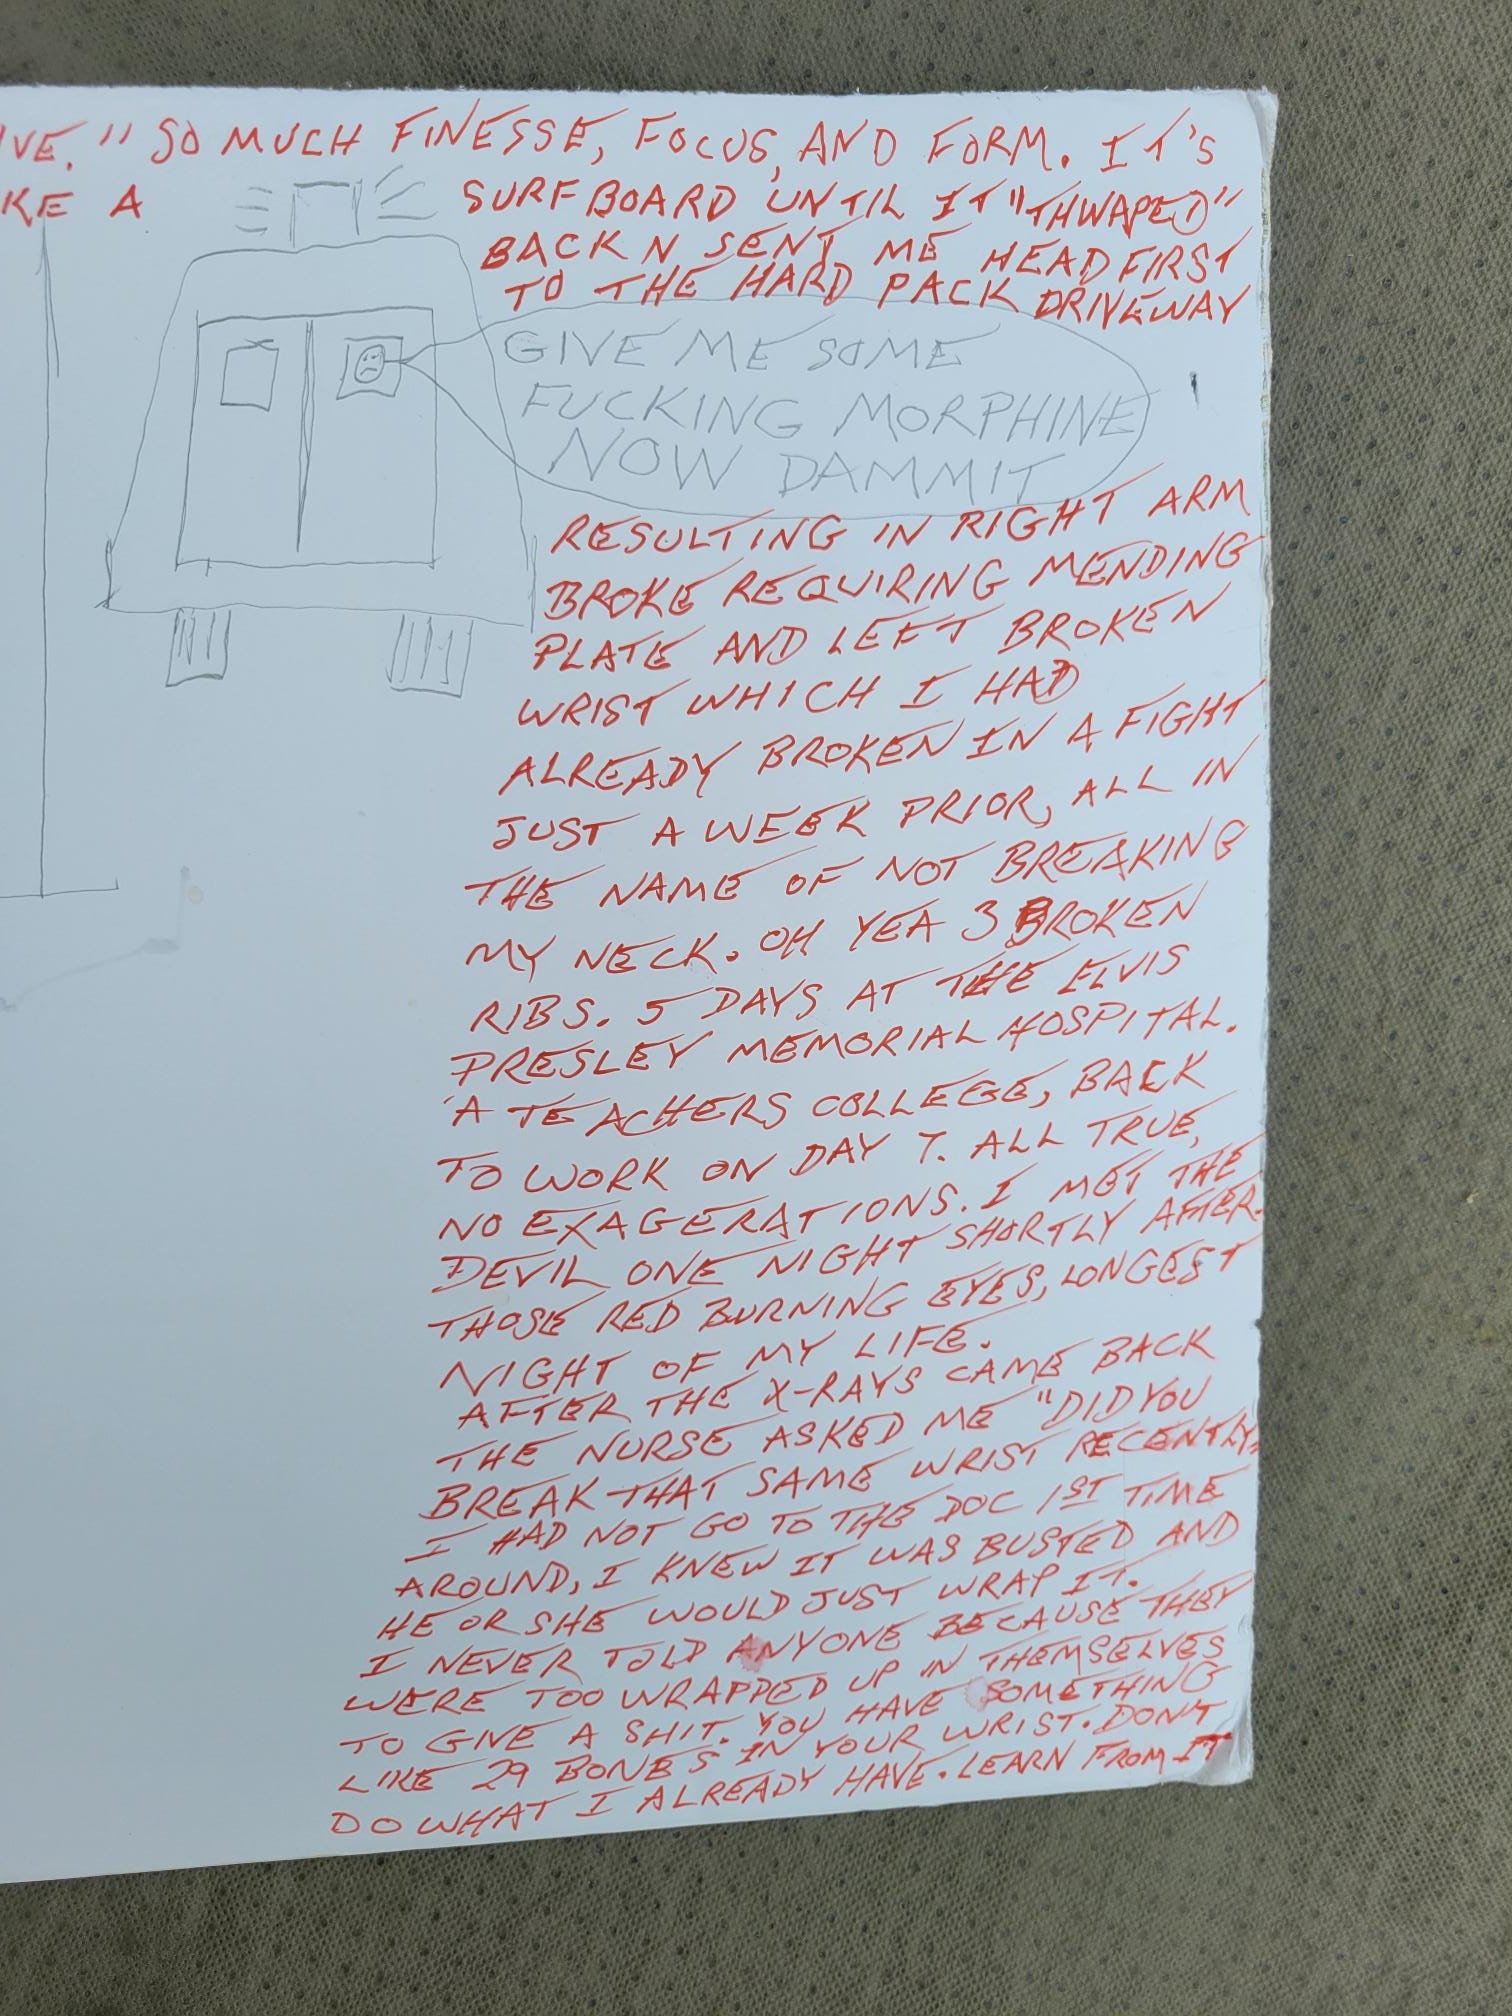 IVE." SO MUCH FINESSE, FOCUS, AND FORM. IT'S
KE A SURFBOARD UNTIL IT "THWAPED"
BACK N SENT ME HEADFIRST
TO THE HARD PACK DRIVEWAY
GIVE ME SOME
FUCKING MORPHINE
NOW DAMMIT
RESULTING IN RIGHT ARM
BROKE REQUIRING MENDING
PLATE AND LEFT BROKEN
WRIST WHICH I HAD
ALREADY BROKEN IN A FIGHT
JUST A WEEK PRIOR, ALL IN
THE NAME OF NOT BREAKING
MY NECK. OH YEA 3 BROKEN
RIBS. 5 DAYS AT THE ELVIS
PRESLEY MEMORIAL HOSPITAL.
A TEACHERS COLLEGE, BACK
TO WORK ON DAY 7. ALL TRUE,
NO EXAGERATIONS. I MET THE
DEVIL ONE NIGHT SHORTLY AFTER.
THOSE RED BURNING EYES, LONGEST
NIGHT OF MY LIFE.
AFTER THE X-RAYS CAME BACK
THE NURSE ASKED ME "DID YOU
BREAK THAT SAME WRIST RECENTLY,
I HAD NOT GO TO THE DOC 1ST TIME
AROUND, I KNEW IT WAS BUSTED AND
HE OR SHE WOULD JUST WRAP IT.
I NEVER TOLD ANYONE BECAUSE THEY
WERE TOO WRAPPED UP IN THEMSELVES
TO GIVE A SHIT. YOU HAVE SOMETHING
LIKE 29 BONES IN YOUR WRIST. DON'T
DO WHAT I ALREADY HAVE. LEARN FROM IT